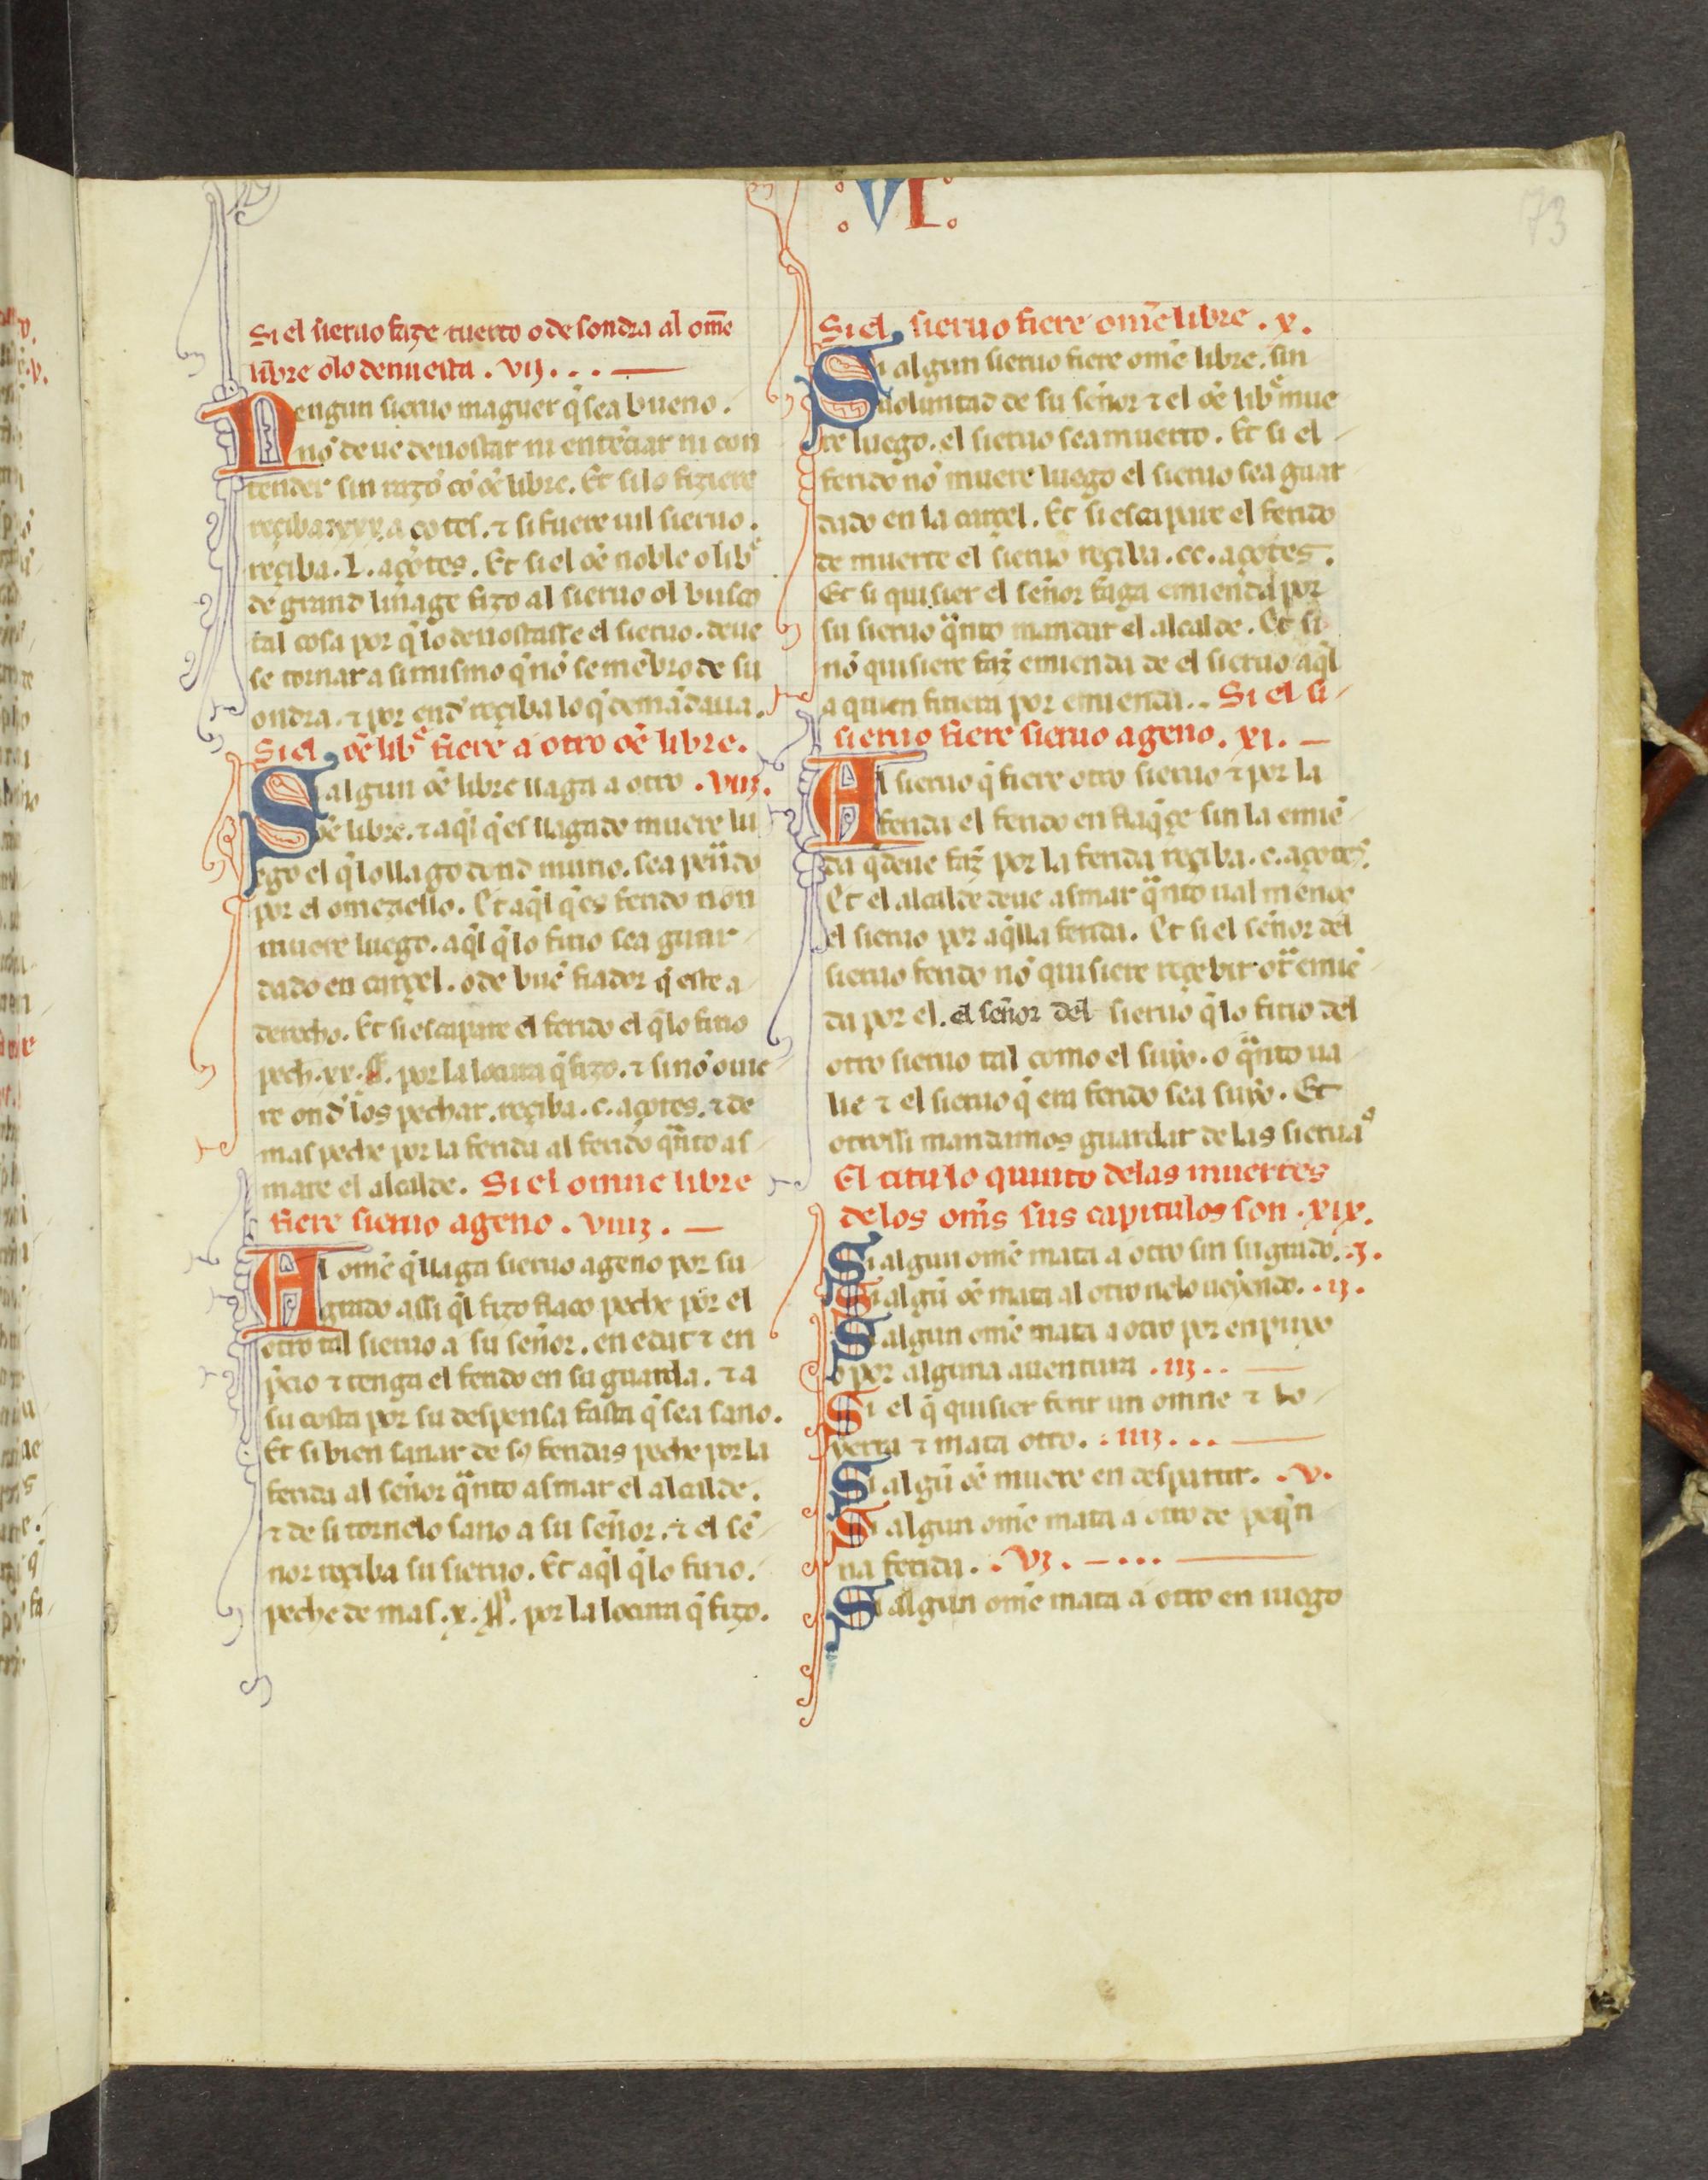 VI
73
Si el sieruo faze tuerto o desondra al om̃e
libre o lo denuesta . vij . . .
Nengun sieruo maguer q̃ sea bueno .
nõ deue denostar ni entẽciar ni con
tender sin razõ cõ oẽ libre. Et si lo fiziere
reçiba xxx açotes. ⁊ si fuere uil sieruo .
reçiba . L . açotes. Et si el oẽ noble o libᵉ
de grand linage fizo al sieruo ol busco
tal cosa por q̃ lo denostasse el sieruo . deue
se tornar a si mismo q̃ nõ se mẽbro de su
ondra . ⁊ por end̃ reçiba lo q̃ demãdaua .
Si el oẽ libᵉ fiere a otro oẽ libre.
Si algun oẽ libre llaga a otro . viij .
oẽ libre . ⁊ aq̃l q̃ es llagado muere lu
ego el q̃ lo llago dond murio . sea peñdo
por el omeziello. Et aq̃l q̃ es ferido non
muere luego . aq̃l q̃ lo firio sea guar
dado en carçel . o de buẽ fiador q̃ este a
derecho. Et si escapare el ferido el q̃ lo firio
pech . xx . ff̃ . por la locura q̃ fizo . ⁊ si nõ ouie
re ond̃ los pechar . reçiba . c . açotes. ⁊ de
mas peche por la ferida al ferido q̃nto as
mare el alcalde. Si el omne libre
fiere sieruo ageno . viiij .
Al omẽ q̃ llaga sieruo ageno por su
grado assi q̃l fizo flaco peche por el
otro tal sieruo a su señor . en edat ⁊ en
p̃cio ⁊ tenga el ferido en su guarda . ⁊ a
su costa por su despensa fasta q̃ sea sano.
Et si bien sanar de sꝯ feridas peche por la
ferida al señor q̃nto asmar el alcalde .
⁊ de si tornelo sano a su señor . ⁊ el se
nor reçiba su sieruo. Et aq̃l q̃ lo firio .
peche de mas . x . ff̃ . por la locura q̃ fizo.
Si el sieruo fiere omẽ libre . x .
Si algun sieruo fiere omẽ libre . sin
uoluntad de su señor ⁊ el oẽ libᵉ mue
re luego . el sieruo sea muerto . Et si el
ferido nõ muere luego el sieruo sea guar
dado en la carçel . Et si escapare el ferido
de muerte el sieruo reçiba . cc . açotes .
Et si quisier el señor faga emienda por
su sieruo q̃nto mandar el alcalde . Et si
nõ quisiere faz̃ emienda de el sieruo aq̃l
a quien firiera por emienda . . Si el si
sieruo fiere sieruo ageno . xi .
Al sieruo q̃ fiere otro sieruo ⁊ por la
ferida el ferido enflaq̃çe sin la emiẽ
da q̃ deue faz̃ por la ferida reçiba . c . açotes.
Et el alcalde deue asmar q̃nto ual menos
el sieruo por aq̃lla ferida. Et si el señor del
sieruo ferido nõ quisiere reçebir otᵃ emiẽ
da por el . el señor del sieruo q̃ lo firio del
otro sieruo tal como el suyo . o q̃nto ua
lie ⁊ el sieruo q̃ era ferido sea suyo . Et
otrossi mandamos guardar de las sieruaˢ
El titulo quinto delas muertes
delos om̃s sus capitulos son . xix .
Si algun omẽ mata a otro sin su grado . j .
Si algũ oẽ mata al otro nolo ueyendo . . ij .
Si algun omẽ mata a otro por enpuxo
o por alguna auentura . iij . .
Si el q̃ quisier ferir un omne ⁊ lo
yerra ⁊ mata otro . . iiij . . .
Si algũ oẽ muere en despartir . . v .
Si algun omẽ mata a otro de peq̃n
na ferida . . vj . . . .
Si algun omẽ mata a otro en iuego